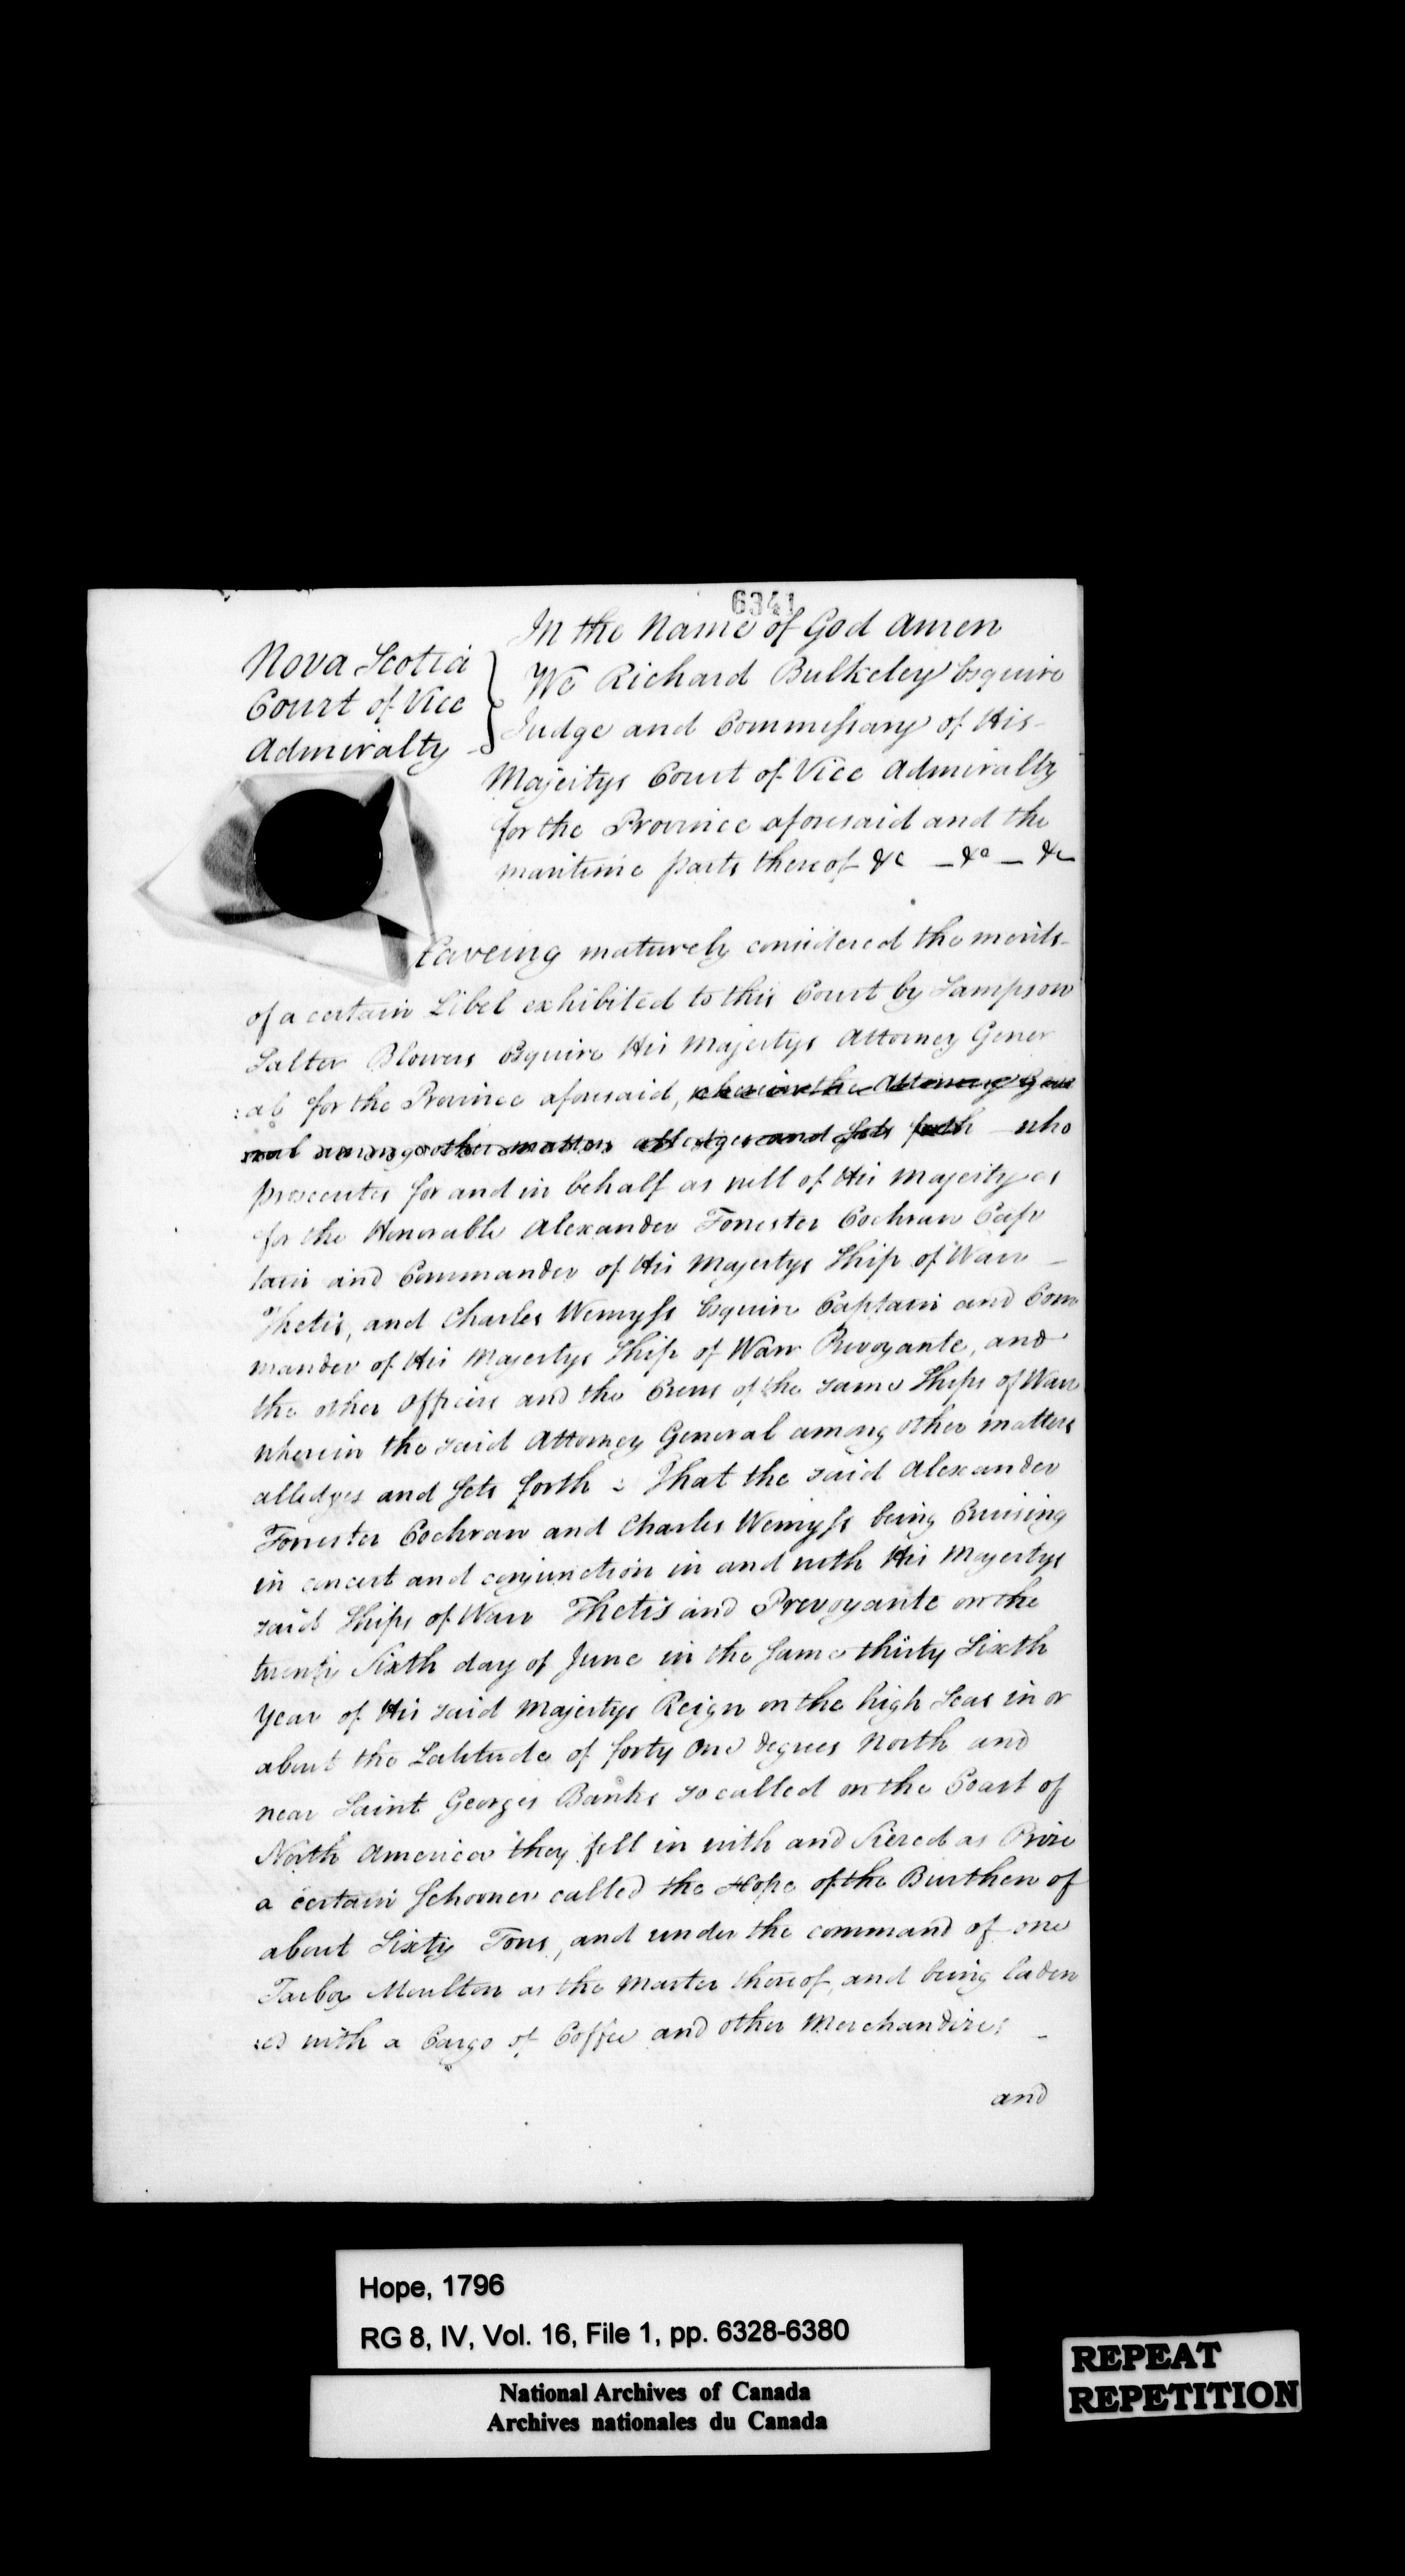 6341
In the Name of God Amen
Nova Scotia
Court of Vice
Admiralty
We Richard Bulkeley Esquire
Judge and Commissary of His
Majestys Court of Vice Admiralty
for the Province aforesaid and the
maritime parts thereof &c – &c – &c
haveing maturely considered the merits
of a certain Libel exhibited to this Court by Sampson
Salter Blowers Esquire His Majestys Attorney Gener
:al for the Province aforesaid, wherein the Attorney Gene
ral among other matters alledges and Sets forth who
prosecutes for and in behalf as well of His Majesty as
for the Honorable Alexander Forrester Cochran Cap
tain and Commander of His Majestys Ship of Warr –
Thetis, and Charles Wemyss Esquire Captain and Com
mander of His Majestys Ship of Warr Prevoyante, and
the other Officers and the Crews of the same Ships of Warr
wherein the said Attorney General among other matters
alledges and Sets forth : That the said Alexander
Forrester Cochran and Charles Wemyss being Cruising
in concert and conjunction in and with His Majestys
said Ships of Warr Thetis and Prevoyante on the
twenty Sixth day of June in the Same thirty Sixth
Year of His said Majestys Reign on the high Seas in or
about the Latitude of forty One degrees North and
near Saint Georges Banks so called on the Coast of
North America they fell in with and Siezed as Prize
a certain Schooner called the Hope of the Burthen of
about Sixty Tons, and under the command of one
Moulton as the Master thereof, and being laden
:ed with a Cargo of Coffee and other Merchandizes –
and
Hope, 1796
RG 8, IV, Vol. 16, File 1, pp. 6328-6380
National Archives of Canada
Archives nationales du Canada
REPEAT
REPETITION